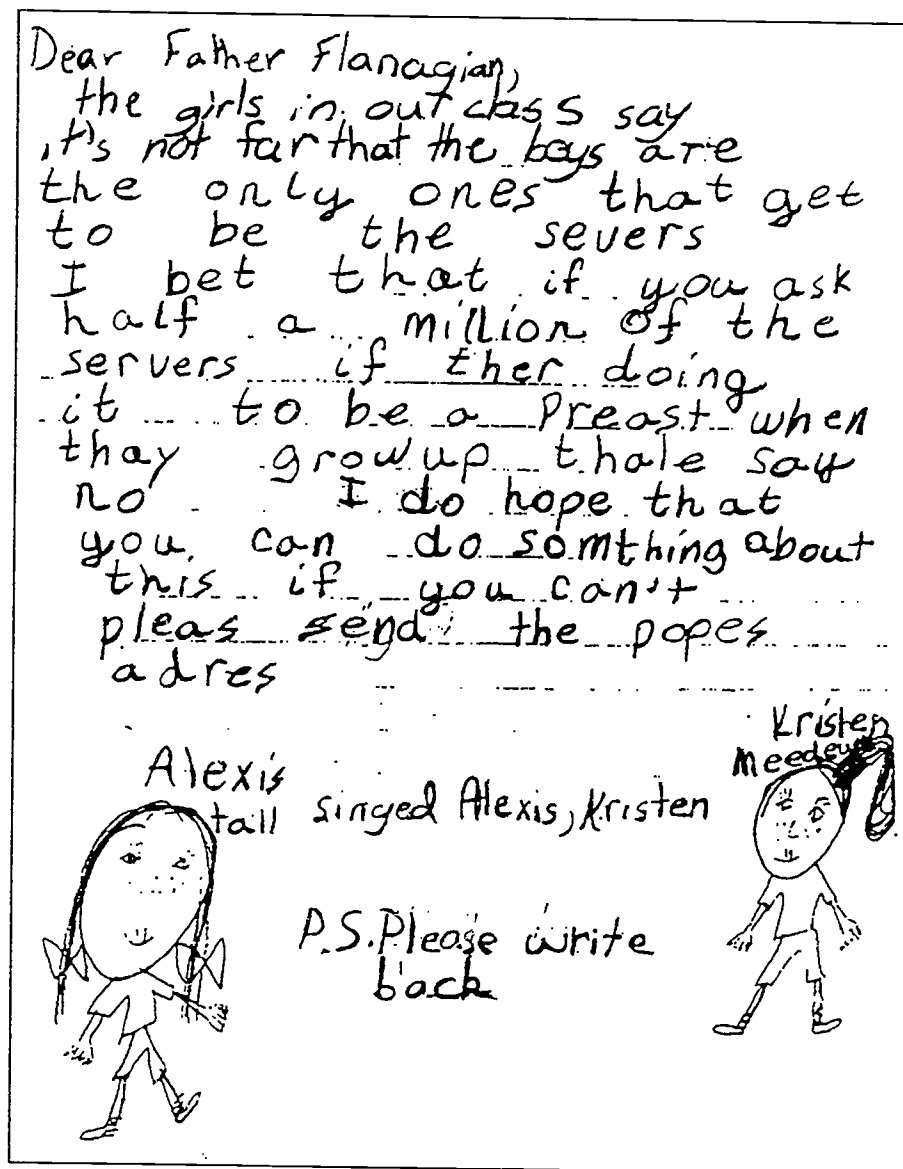 Dear Father Flanagian,
the girls in out class say
it's not far that the boys are
the only ones that get
to be the severs
I bet that if you ask
half a million Of the
servers if ther doing
it to be a Preast when
thay grow up thale say
no I do hope that
you can do somthing about
this if you can't
pleas send the popes
adres
Kristen
Alexis
tall singed Alexis, Kristen
P.S. Please write
back